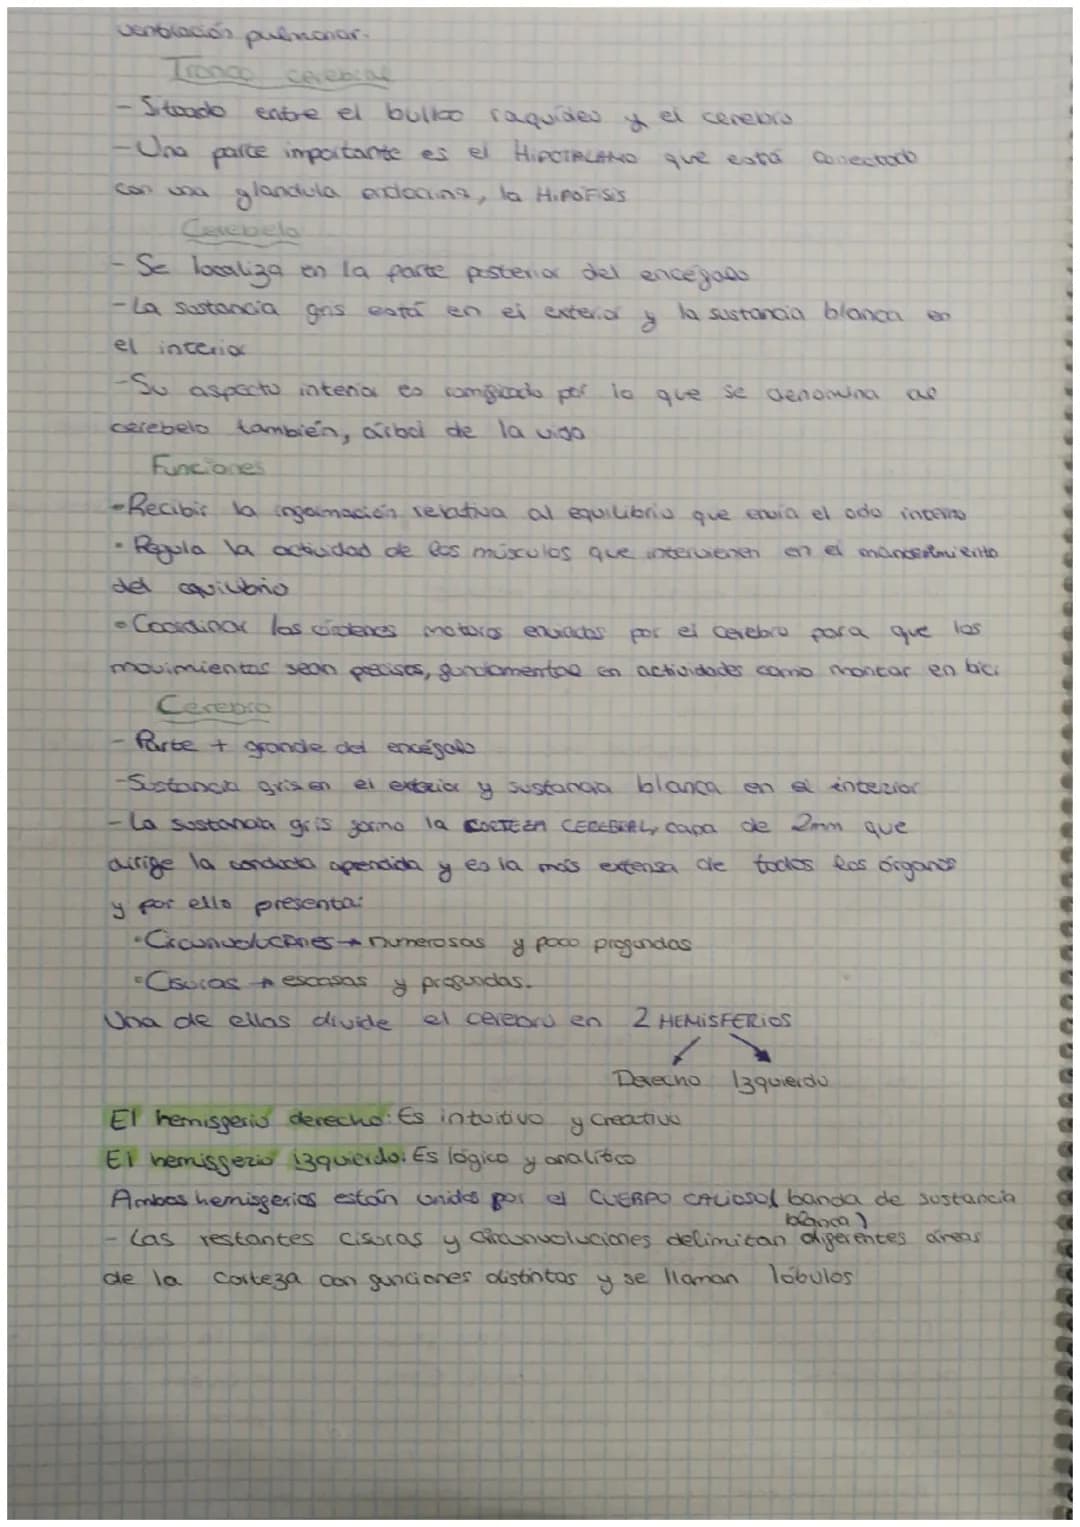 ventilación pulmonar.
Tronco cerebral
- Situado entre el bulbo raquídeo y el cerebro
- Una parte importante es el HIPOTÁLAMO que está conectado
con una glandula endocrina, la HIPÓFISIS
Cerebelo
- Se localiza en la parte posterior del encéfalo
- La sustancia gris está en el exterior y la sustancia blanca en
el interior
- Su aspecto interior es ramificado por lo que se denomina al
cerebelo también, árbol de la vida
Funciones
- Recibir la información relativa al equilibrio que envía el oído interno
• Regula la actividad de los músculos que intervienen en el mantenimiento
del equilibrio
• Coordinar las órdenes motoras enviadas por el cerebro para que los
movimientos sean precisos, fundamental en actividades como montar en bici
Cerebro
- Parte + grande del encéfalo
- Sustancia gris en el exterior y sustancia blanca en el interior
- La sustancia gris forma la CORTEZA CEREBRAL, capa de 2mm que
dirige la conducta aprendida y es la más extensa de todos los órganos
y por ello presenta:
• Circunvoluciones → numerosas y poco profundas
• Cisuras → escasas y profundas.
Una de ellas divide el cerebro en 2 HEMISFERIOS
Derecho Izquierdo
El hemisferio derecho: Es intuitivo y creativo
El hemisferio izquierdo: Es lógico y analítico
Ambos hemisferios están unidos por el CUERPO CALLOSO( banda de sustancia
blanca)
- Las restantes cisuras y circunvoluciones delimitan diferentes áreas
de la corteza con funciones distintas y se llaman lóbulos